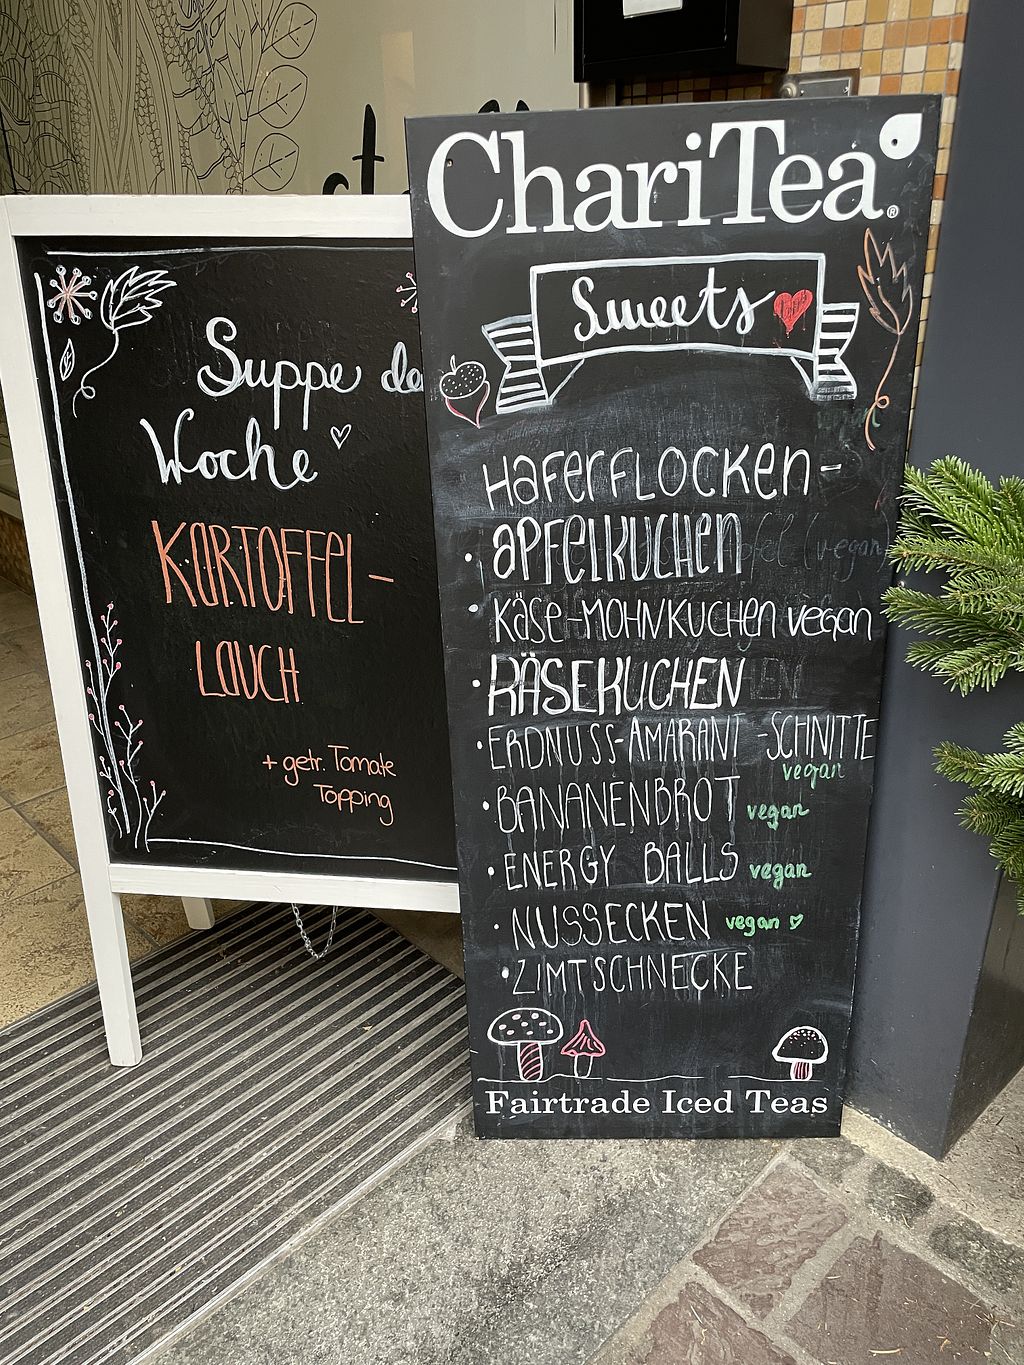 Suppe de
Woche
KARTOFFEL-
LAUCH
+ getr. Tomate
Topping
ChariTea®
Sweets
HAFERFLOCKEN-
· APFELKUCHEN
(vegan)
· KÄSE-MOHNKUCHEN vegan
· KÄSEKUCHEN
· ERDNUSS-AMARANT-SCHNITTE
vegan
· BANANENBROT vegan
· ENERGY BALLS vegan
· NUSSECKEN vegan
· ZIMTSCHNECKE
Fairtrade Iced Teas